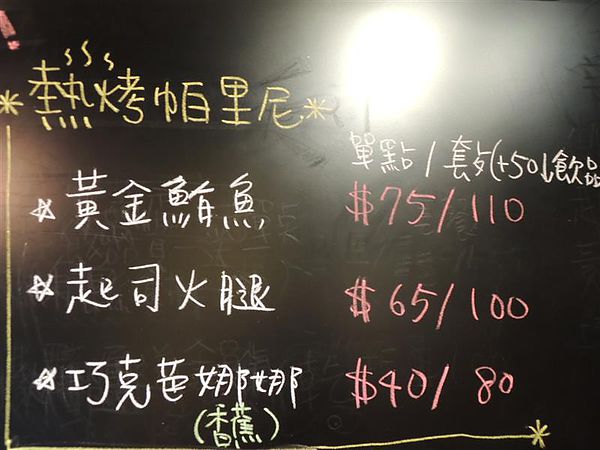 *熱烤帕里尼*
單點 / 套(+50↓飲品
☆黃金鮪魚 $75/110
☆起司火腿 $65/100
☆巧克芭娜娜 $40/80
(香蕉)